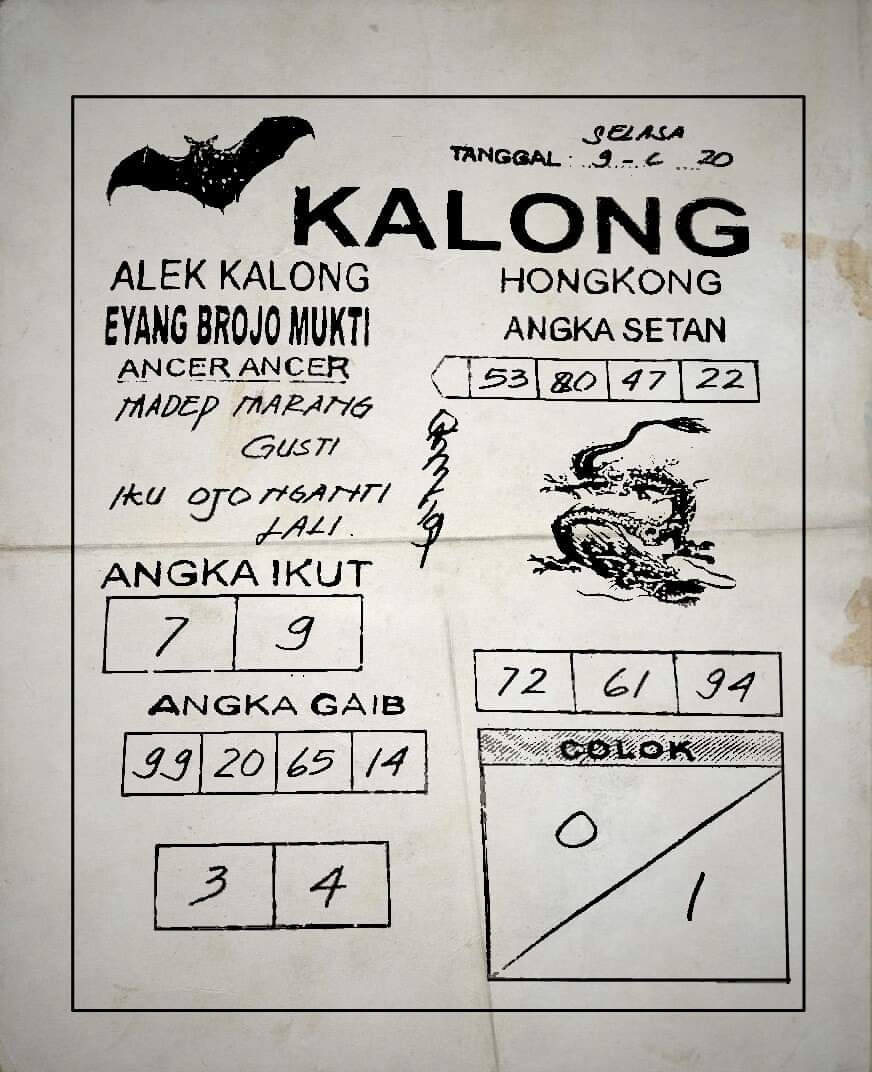 SELASA
TANGGAL : 9 - 6 20
KALONG
ALEK KALONG
EYANG BROJO MUKTI
ANCER ANCER
MADEP MARANG
GUSTI
IKU OJO NGANTI
LALI.
ANGKA IKUT
7 9
ANGKA GAIB
99 20 65 14
3 4
HONGKONG
ANGKA SETAN
53 80 47 22
72 61 94
COLOK
0
1